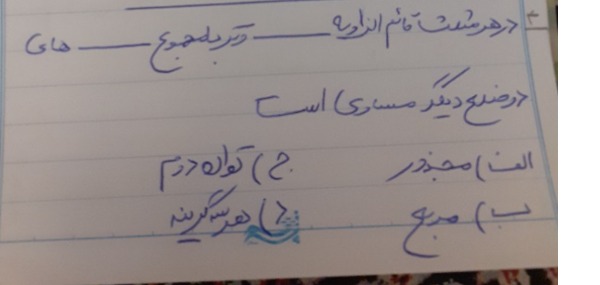 ۳ در هر مثلث قائم الزاویه ــــــ وتر با مجموع ــــــ های
دو ضلع دیگر مساوی است
الف) مجذور ج) توان دوم
ب) مربع د) هر سه گزینه